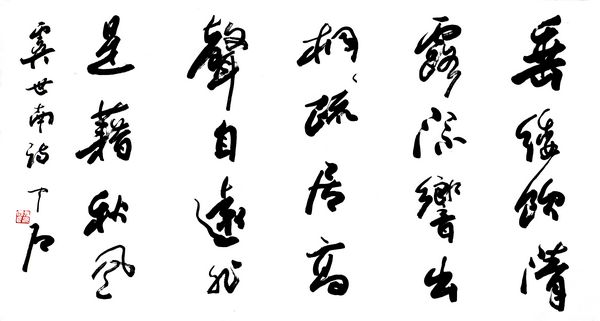 垂緌飲清
露流響出
桐疏居高
聲自遠非
是藉秋風
虞世南詩 中石